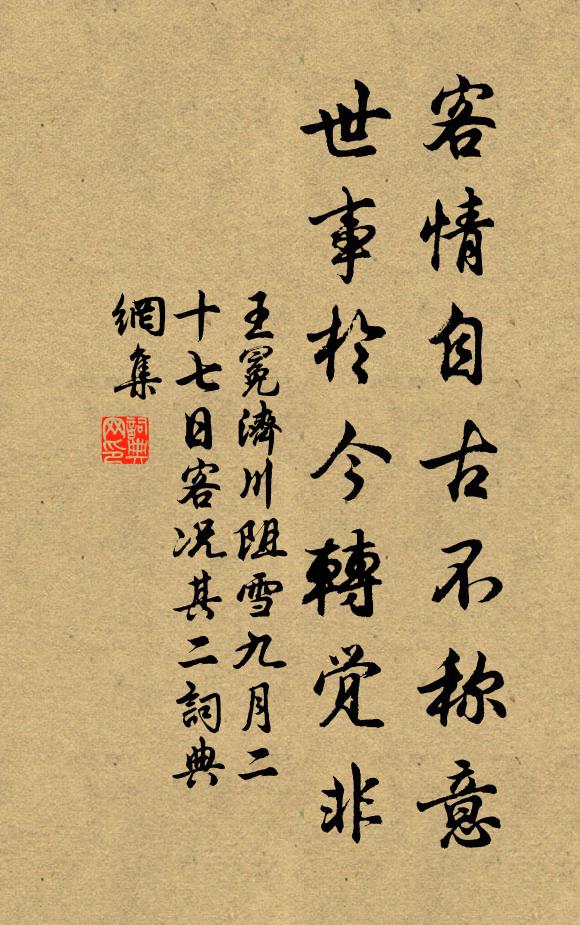 客情自古不称意
世事於今轉覚非
王冕濟川阻雪九月二
十七日客况其二詞典
網集
詞典
网印